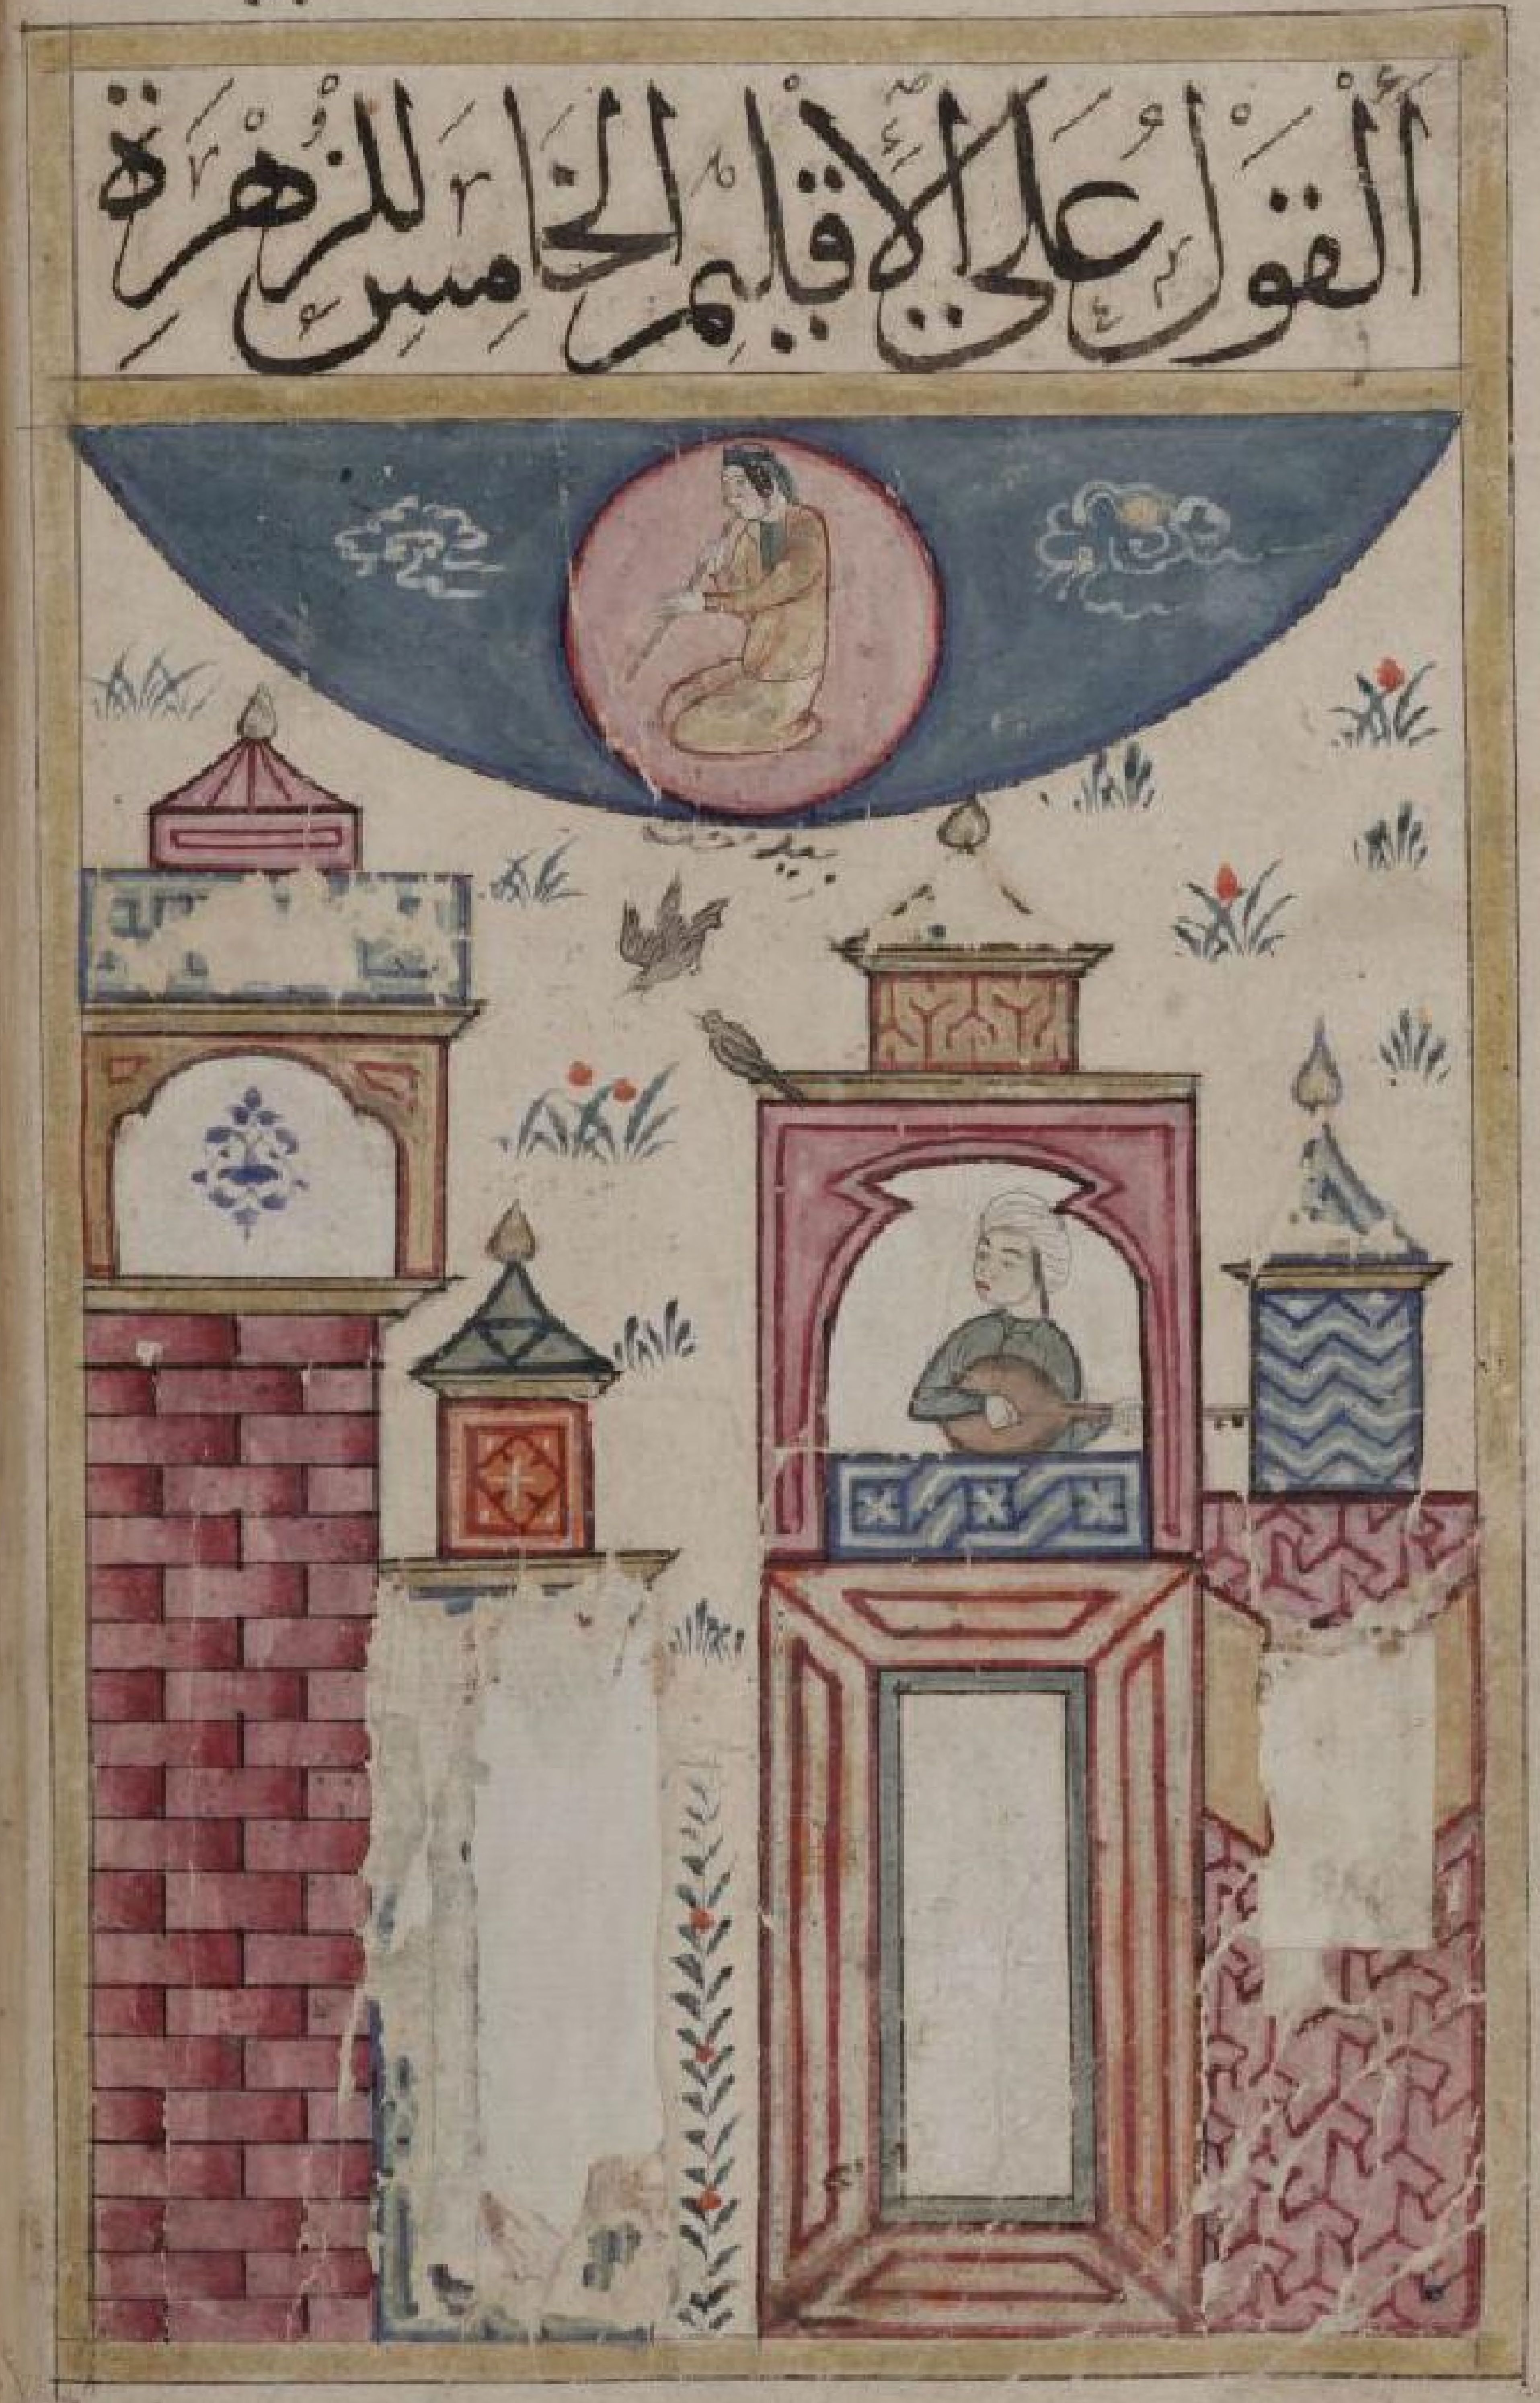 اَلْقَوْلُ عَلَى الْإِقْلِيمِ الْخَامِسِ لِلزُّهْرَةِ